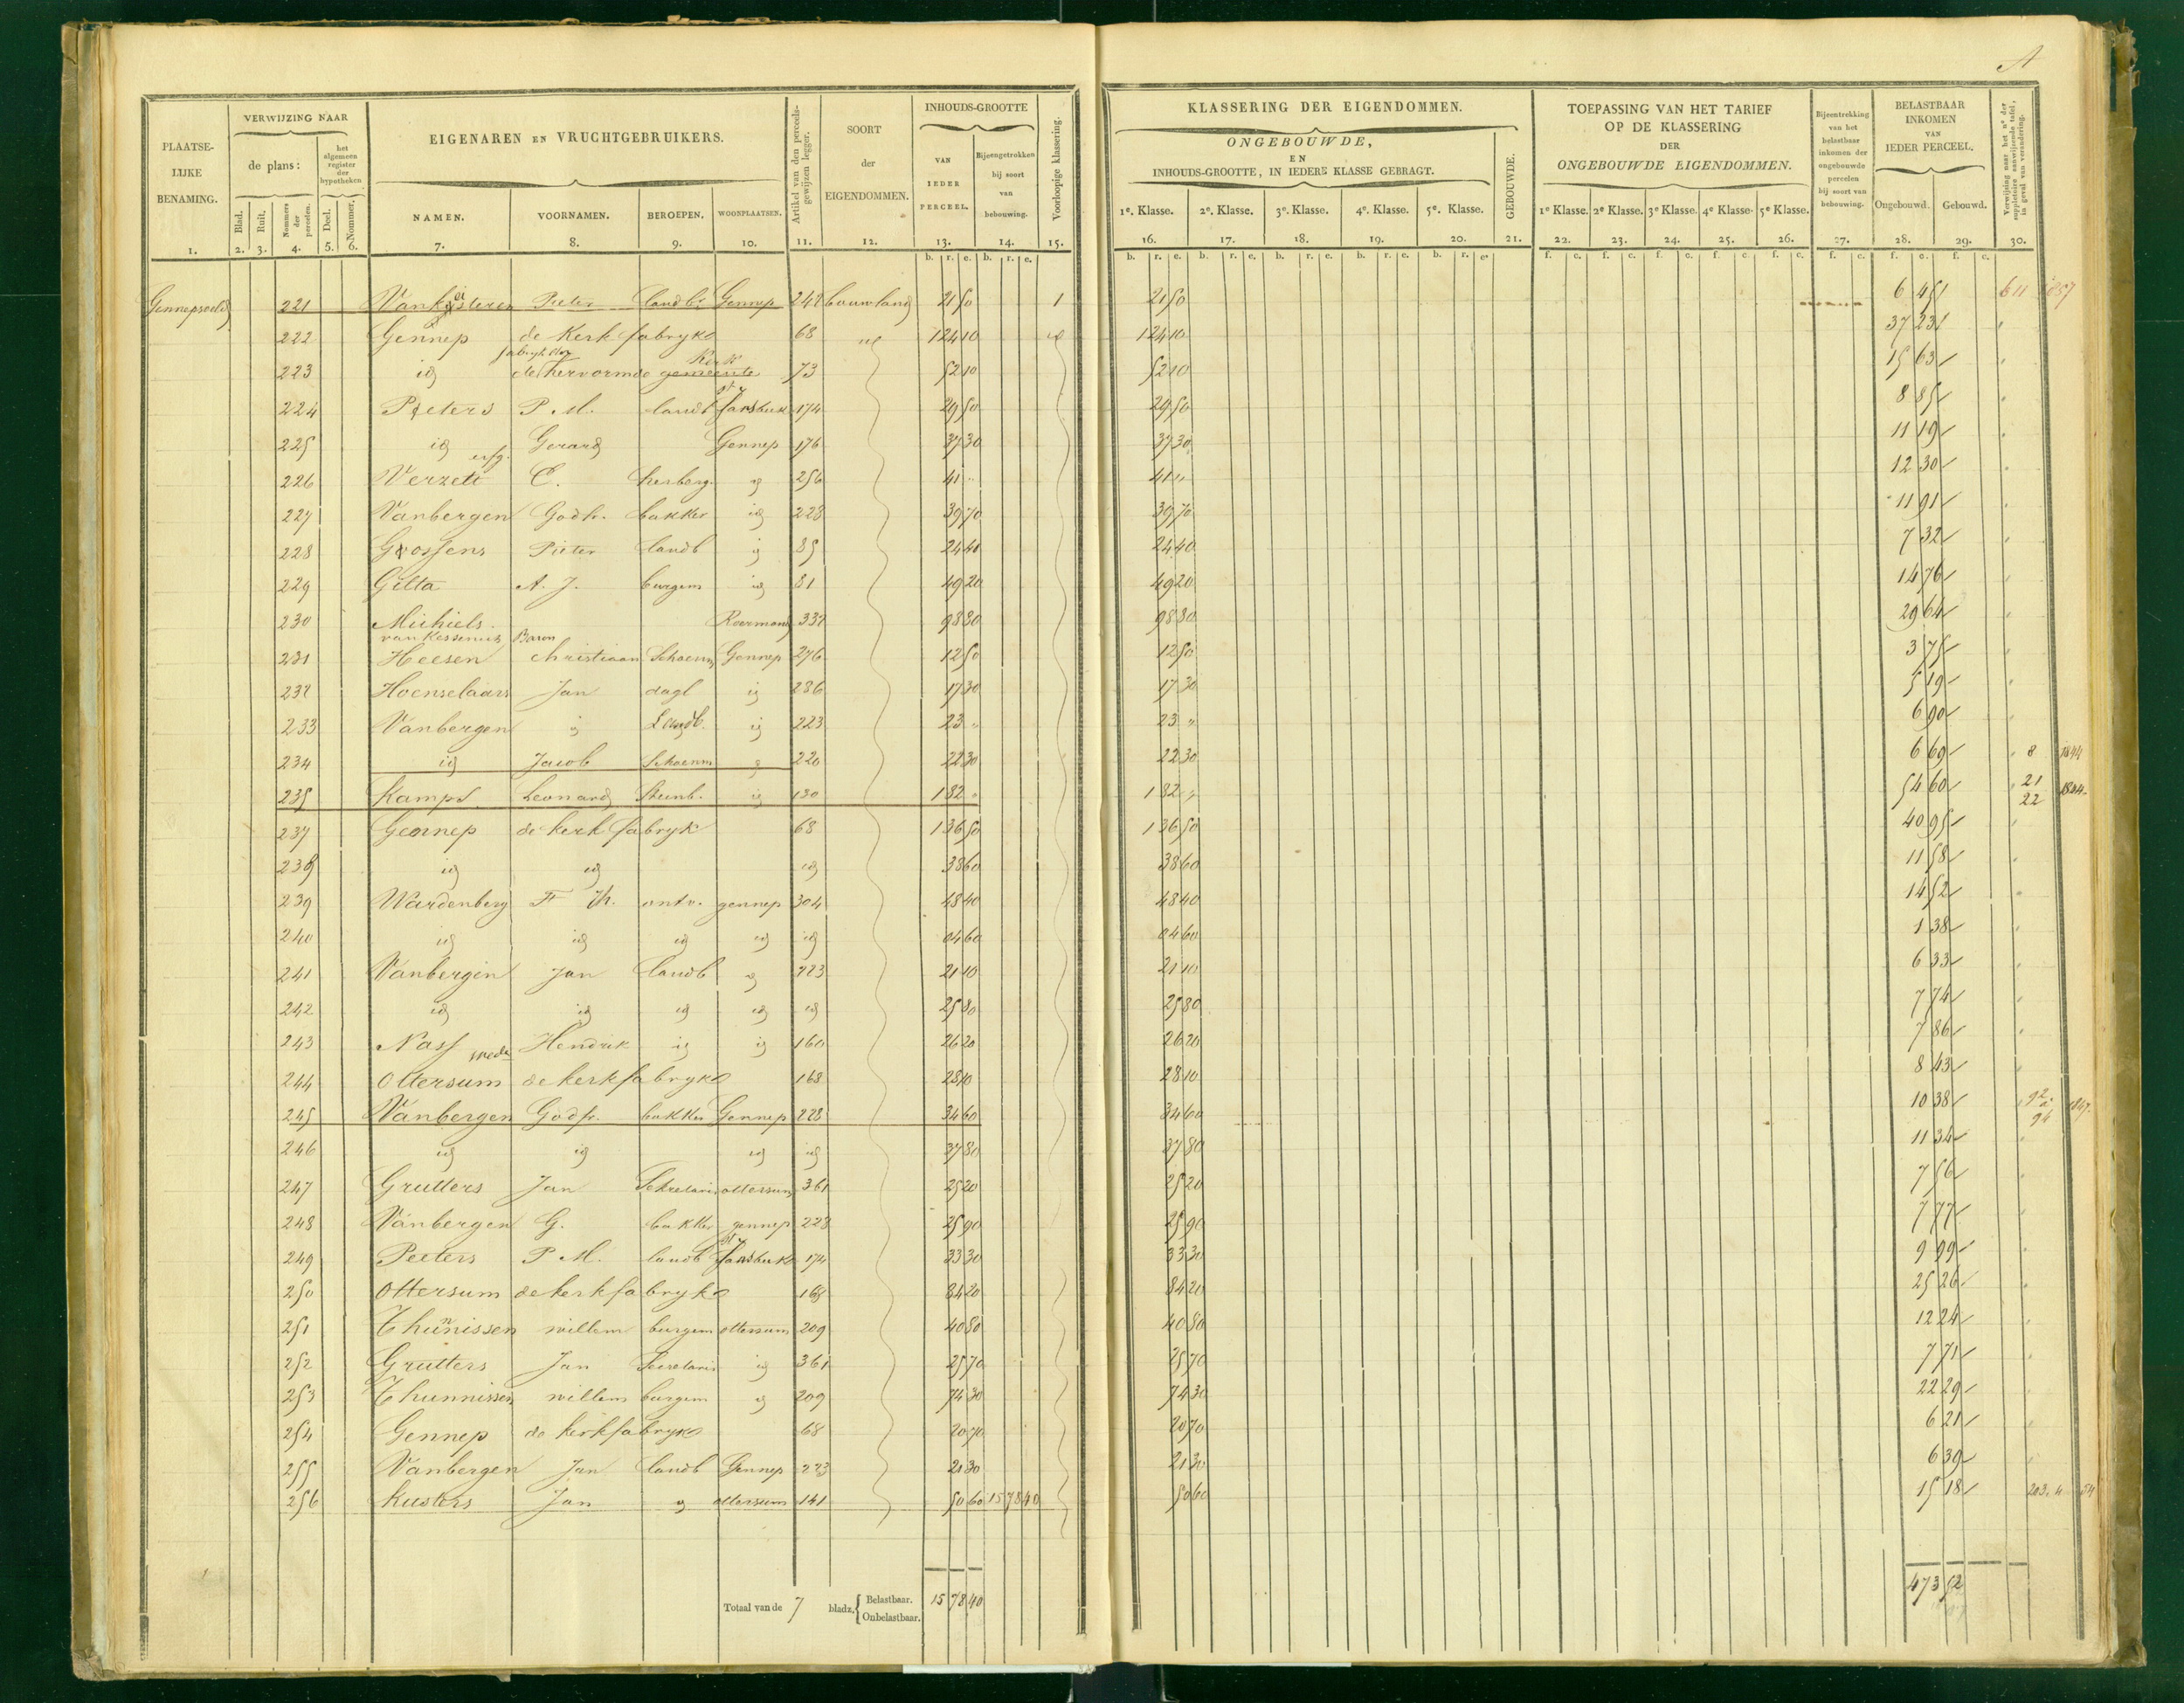 A
PLAATSE-
LIJKE
BENAMING.
VERWIJZING NAAR
de plans:
het algemeen register der hypotheken
Blad.
Ruit.
Nommers der perceelen.
Deel.
Nommer.
EIGENAREN EN VRUCHTGEBRUIKERS.
NAMEN.
VOORNAMEN.
BEROEPEN.
WOONPLAATSEN.
Artikel van den perceels-gewijzen legger.
SOORT
der
EIGENDOMMEN.
INHOUDS-GROOTTE
VAN IEDER PERCEEL.
Bijeengetrokken bij soort van bebouwing.
Voorloopige klassering.
KLASSERING DER EIGENDOMMEN.
ONGEBOUWDE,
EN
INHOUDS-GROOTTE, IN IEDERE KLASSE GEBRAGT.
1e. Klasse. 2e. Klasse. 3e. Klasse. 4e. Klasse. 5e. Klasse.
GEBOUWDE.
TOEPASSING VAN HET TARIEF
OP DE KLASSERING
DER
ONGEBOUWDE EIGENDOMMEN.
1e Klasse. 2e Klasse. 3e Klasse. 4e Klasse. 5e Klasse.
Bijeentrekking van het belastbaar inkomen der ongebouwde percelen bij soort van bebouwing.
BELASTBAAR
INKOMEN
VAN
IEDER PERCEEL.
Ongebouwd. Gebouwd.
Verwijzing naar het no der suppletoire aanwijzende tafel, in geval van verandering.
1. 2. 3. 4. 5. 6. 7. 8. 9. 10. 11. 12. 13. 14. 15. 16. 17. 18. 19. 20. 21. 22. 23. 24. 25. 26. 27. 28. 29. 30.
b. r. e. b. r. e. b. r. e. b. r. e. b. r. e. b. r. e. b. r. e. f. c. f. c. f. c. f. c. f. c. f. c. f. c. f. c.
221 Pieter landbr Gennep 242 bouwland 21 50 1 21 50 6 45 611 1857
222 Gennep de Kerk fabryke 68 id 1 24 10 id 1 24 10 37 23
223 id fabryk der hervormde gemeente Kerk 73 52 10 52 10 15 63
224 Peters P. M. landb St Jansbeek 174 29 50 29 50 8 85
225 id Gerard Gennep 176 37 30 37 30 11 19
226 Verzett erfg. C. herberg. id 256 41 " 41 " 12 30
227 Vanbergen Godfr. bakker id 228 39 70 39 70 11 91
228 Goossens Pieter landb id 85 24 40 24 40 7 32
229 Gilta A. J. burgem id 81 49 20 49 20 14 76
230 Michiels van Kessenich Baron Roermond 337 98 80 98 80 29 64
231 Heesen Christiaan Schoenm Gennep 276 12 50 12 50 3 75
232 Hoenselaars Jan dagl id 286 17 30 17 30 5 19
233 Vanbergen id Landb. id 223 23 " 23 " 6 90
234 id Jacob Schoenm id 220 22 30 22 30 6 69 8 1844
235 Kamps Leonard Steenb. id 130 1 82 " 1 82 " 54 60 21 22 1844
237 Gennep de kerk fabryk 68 1 36 50 1 36 50 40 95
238 id id id 38 60 38 60 11 58
239 Wardenberg F Th. ontv. gennep 304 48 40 48 40 14 52
240 id id id id id 04 60 04 60 1 38
241 Vanbergen Jan landb id 223 21 10 21 10 6 33
242 id id id id id 25 80 25 80 7 74
243 Nass wede Hendrik id id 160 26 20 26 20 7 86
244 Ottersum de kerkfabryke 168 28 10 28 10 8 43
245 Vanbergen Godfr. bakker Gennep 228 34 60 34 60 10 38 92 a 94 1847.
246 id id id id 37 80 37 80 11 34
247 Grutters Jan Sekretaris ottersum 361 25 20 25 20 7 56
248 Vanbergen G. bakker gennep 228 25 90 25 90 7 77
249 Peeters P. M. landb St Jansbeek 174 33 30 33 30 9 99
250 Ottersum de kerkfabryke 168 84 20 84 20 25 26
251 Thunnissen willem burgem ottersum 209 40 80 40 80 12 24
252 Grutters Jan Secretaris id 361 25 70 25 70 7 71
253 Thunnissen willem burgem id 209 74 30 74 30 22 29
254 Gennep de kerkfabryke 68 20 70 20 70 6 21
255 Vanbergen Jan landb Gennep 223 21 30 21 30 6 39
256 Kusters Jan id ottersum 141 50 60 15 78 40 50 60 15 18 54
Totaal van de 7 bladz. Belastbaar. 15 78 40
Onbelastbaar.
473 52